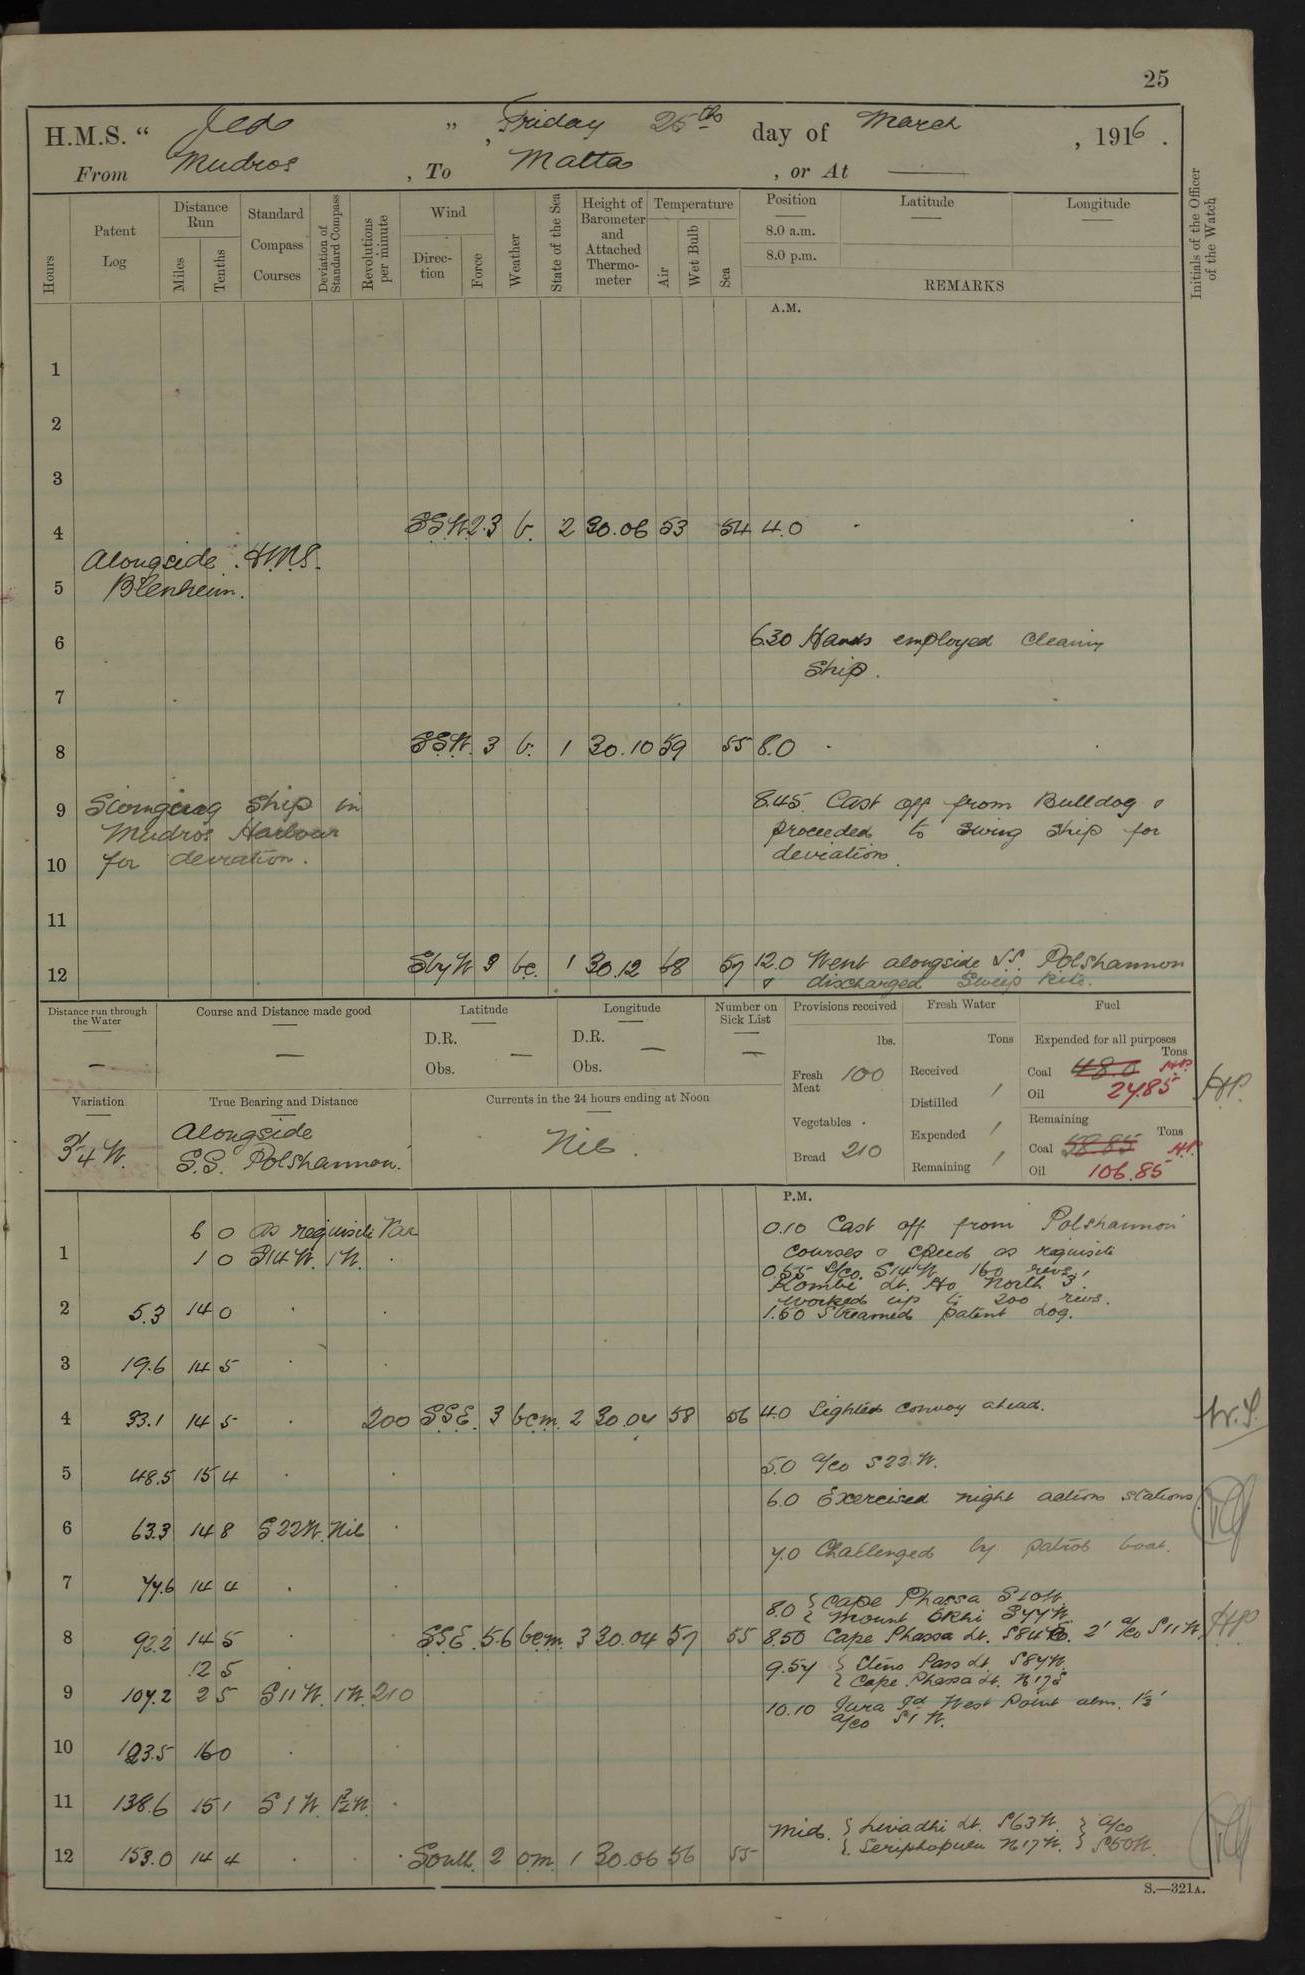 25
H.M.S. " Jed ", Friday 25th day of March, 1916.
From Mudros, To Malta, or At —
Hours
Patent Log
Distance Run
Miles
Tenths
Standard Compass Courses
Deviation of Standard Compass
Revolutions per minute
Wind
Direction
Force
Weather
State of the Sea
Height of Barometer and Attached Thermometer
Temperature
Air
Wet Bulb
Sea
Position
Latitude
Longitude
8.0 a.m.
8.0 p.m.
REMARKS
Initials of the Officer of the Watch
A.M.
1
2
3
4 SSW. 2.3 b. 2 30.06 53 54 4.0
Alongside H.M.S.
5 Blenheim.
6 6.30 Hands employed cleaning
Ship.
7
8 SSW. 3 b. 1 30.10 59 55 8.0
9 Swinging Ship in 8.45. Cast off from Bulldog &
Mudros Harbour proceeded to swing ship for
10 for deviation. deviation.
11
12 SbyW 3 bc. 1 30.12 68 57 12.0 Went alongside S.S. Polshannon
& discharged Sweep Kite.
Distance run through the Water
—
Course and Distance made good
—
Latitude
D.R.
Obs. —
Longitude
D.R.
Obs. —
Number on Sick List
—
Provisions received
lbs.
Fresh Meat 100
Vegetables
Bread 210
Fresh Water
Tons
Received
Distilled
Expended
Remaining
Fuel
Expended for all purposes
Tons
Coal 48.0 H.P.
Oil 27.85
Remaining
Tons
Coal 58.85 H.P.
Oil 106.85
H.P.
Variation
3¾ W.
True Bearing and Distance
Alongside
S.S. Polshannon.
Currents in the 24 hours ending at Noon
Nil.
P.M.
6 0 as requisite Var 0.10 Cast off from Polshannon
1 1 0 S14W. 1W. Courses & Speed as requisite
0.55 A/co. S14W. 160 revs.
Kombi Lt. Ho North 3'.
Worked up to 200 revs.
2 5.3 14 0 1.50 Streamed patent Log.
3 19.6 14 5
4 33.1 14 5 200 SSE. 3 bcm. 2 30.04 58 56 4.0 Sighted convoy ahead.
W.S.
5 48.5 15 4 5.0 A/co S22.W.
6.0 Exercised night action stations.
6 63.3 14 8 S22W. Nil
7.0 Challenged by patrol boat.
7 77.6 14 4
8.0 { Cape Phassa S10W.
{ Mount Okhi S77W.
8 92.2 14 5 SSE. 5.6 bcm. 3 30.04 57 55 8.50 Cape Phassa Lt. S84W. 2' A/co S11W. H.P.
12 5 9.57 { Steno Pass Lt. S87W.
9 107.2 2 5 S11W. 1W. 210 { Cape Phassa Lt. N17E
10.10 Jura Id West Point abm. 1½'
A/co S1W.
10 123.5 16 0
11 138.6 15 1 S1W. 1½W.
Mid. { Livadhi Lt. S63W. } A/co
12 153.0 14 4 South. 2 om. 1 30.06 56 55 { Seriphopulu N17W. } S50W.
S.—321A.